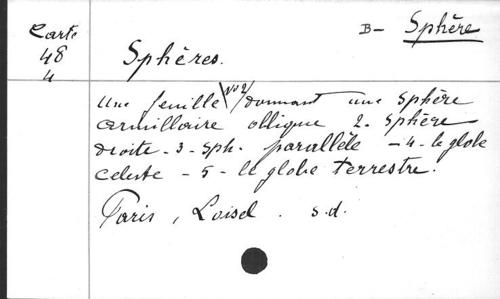 Carte
48
4
B- Sphère
Sphères.
Une feuille (No 2) donnant une sphère
armillaire oblique 2- sphère
droite - 3 - sph. parallèle - 4 - le globe
celeste - 5 - le globe terrestre.
Paris, Loisel. s.d.